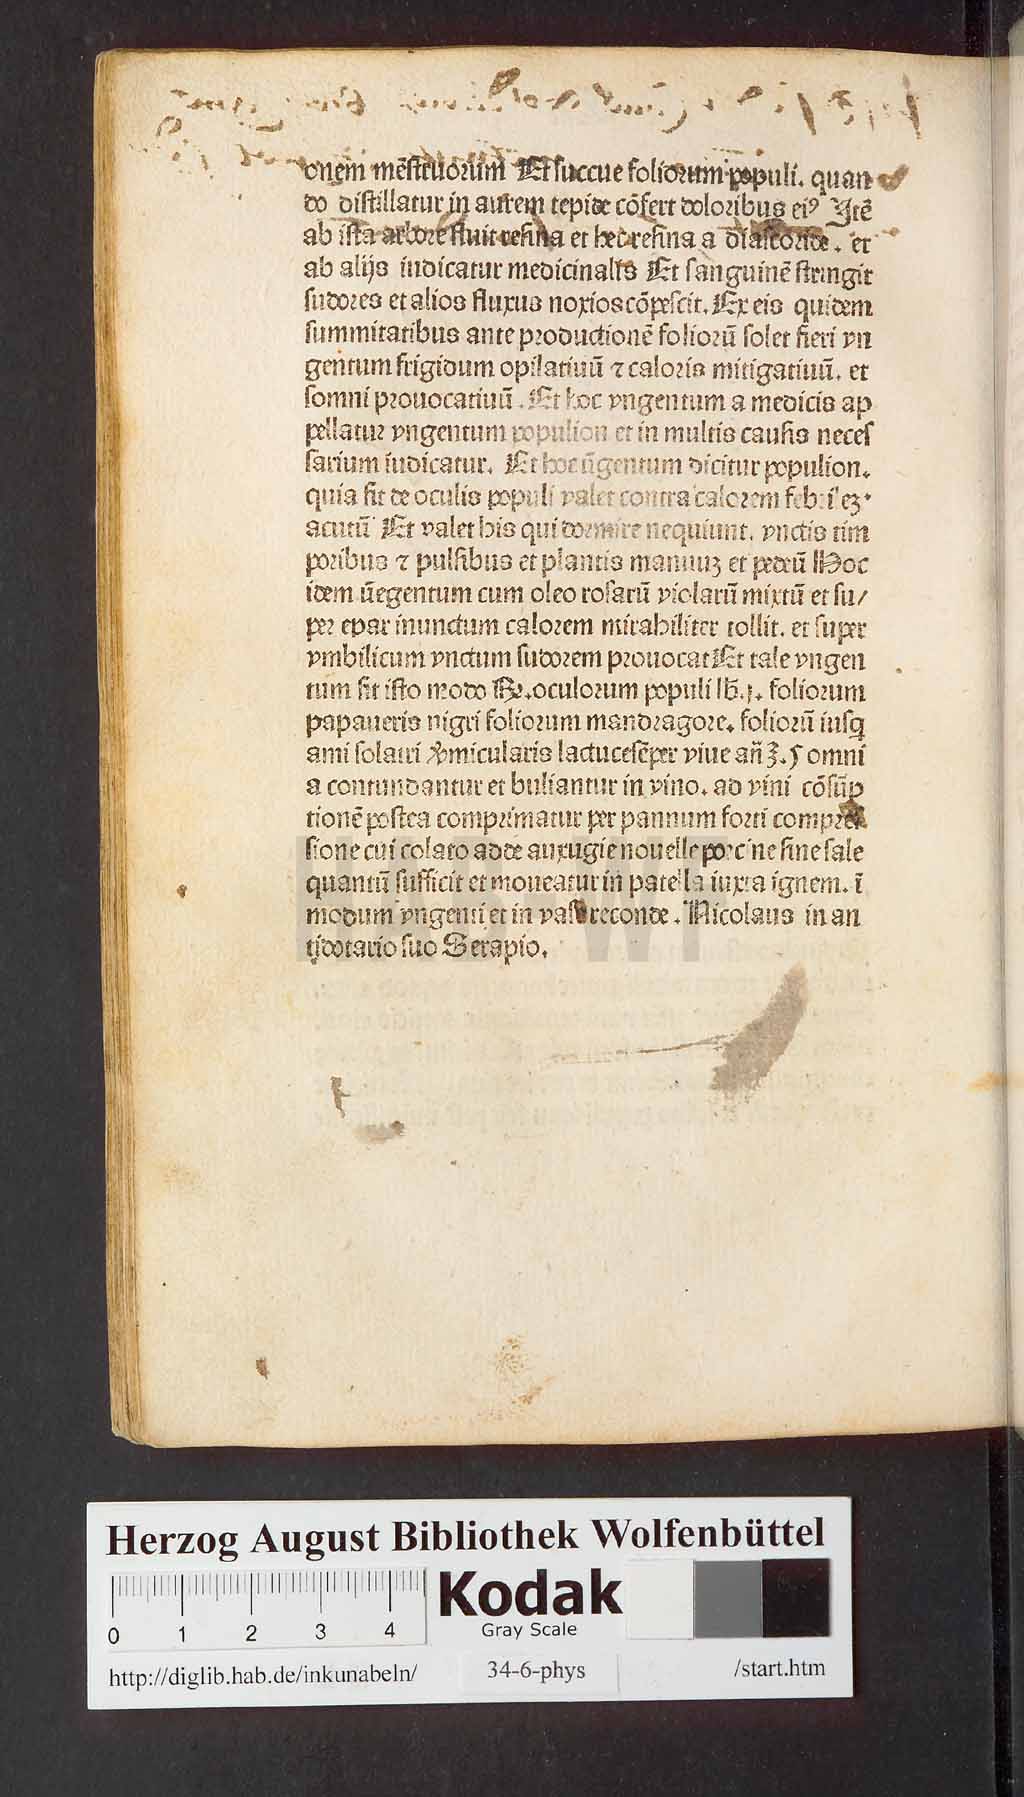 onem mēſtruorum Et ſuccue foliorum populi. quan
do diſtillatur in aurem tepide cōfert doloribus eiꝰ Itē
ab iſta arbore fluit reſina et hec reſina a diaſcoride. et
ab alijs iudicatur medicinalis Et ſanguinē ſtringit
ſudores et alios fluxus noxios cōpeſcit. Ex eis quidem
ſummitatibus ante productionē foliorū ſolet fieri vn
gentum frigidum opilatiuū ⁊ caloris mitigatiuū. et
ſomni prouocatiuū. Et hoc vngentum a medicis ap
pellatur vngentum populion et in multis cauſis neceſ
ſarium iudicatur. Et hoc ūgentum dicitur populion.
quia fit de oculis populi valet contra calorem
acutū Et valet his qui dormire nequiunt. vnctis tim
poribus ⁊ pulſibus et plantis manuuꝫ et pedeū Hoc
idem ūegentum cum oleo roſarū violarū mixtū et ſu/
per epar inunctum calorem mirabiliter tollit. et ſuper
vmbilicum vnctum ſudorem prouocat Et tale vngen
tum fit iſto modo ℞. oculorum populi lb̄.j. foliorum
papaueris nigri foliorum mandragore. foliorū iuſq̄
ami ſolatri v̓micularis lactuce ſēper viue an̄ ℥.5 omni
a contundantur et buliantur in vino. ad vini cōſūp
tionē poſtea comprimatur per pannum forti compreſ
ſione cui colato adde auxugie nouelle porcine ſine ſale
quantū ſufficit et moueatur in patella iuxta ignem. ī
modum vngenti et in vaſe reconde. Nicolaus in an
tidotario ſuo Serapio.
HAB WF
Herzog August Bibliothek Wolfenbüttel
0 1 2 3 4
Kodak
Gray Scale
http://diglib.hab.de/inkunabeln/ 34-6-phys /start.htm